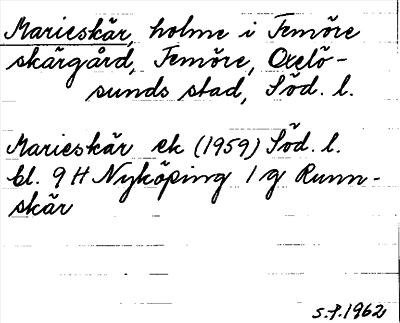 Marieskär, holme i Femöre
skärgård, Femöre, Oxelö-
sunds stad, Söd. l.
Marieskär ek (1959) Söd. l.
bl. 9 H Nyköping 1 g Runn-
skär
s.f. 1962